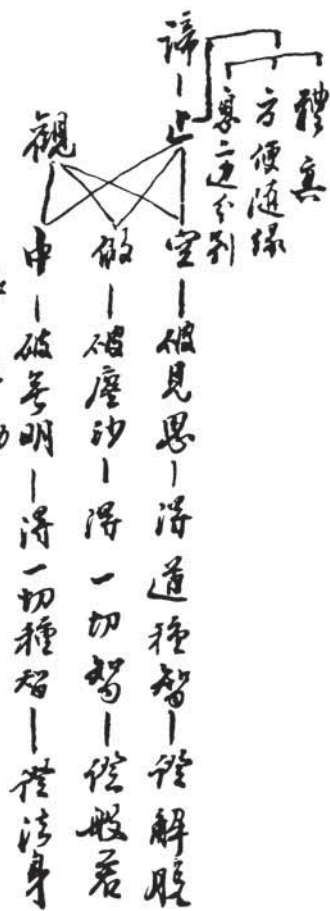 體真
方便隨緣
息二边分别
諦－止
空－破見思－得道種智－證解脱
假－破塵沙－得一切智－證般若
觀
中－破無明－得一切種智－證法身